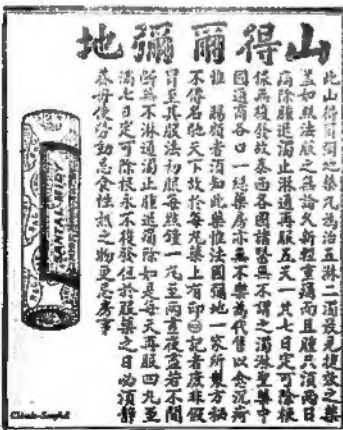 山得爾彌地
此山得爾彌地藥丸為治五淋二濁最見復效之藥
盖如照法服之無論久新輕重濁而且腫只須兩日
痛除腫退濁止淋通再服五天一共七日定可除根
保無復發故泰西各國諸醫無不謂之濁淋聖藥中
國通商各口一経藥房亦無不樂為代售以愈沉疴
惟 賜顧者須知此藥惟法國彌地一家所製方秘
不傳名馳天下故於每丸藥上有印記者度非假
冒至其服法初服每點鐘一丸至兩晝夜盡若不間
斷無不淋通濁止腫退痛除如是每天再服四丸至
滿七日定可除根永不復發但於服藥之日必須靜
養毋使勞動忌食性熱之物更忌房事
SANTAL MIDY